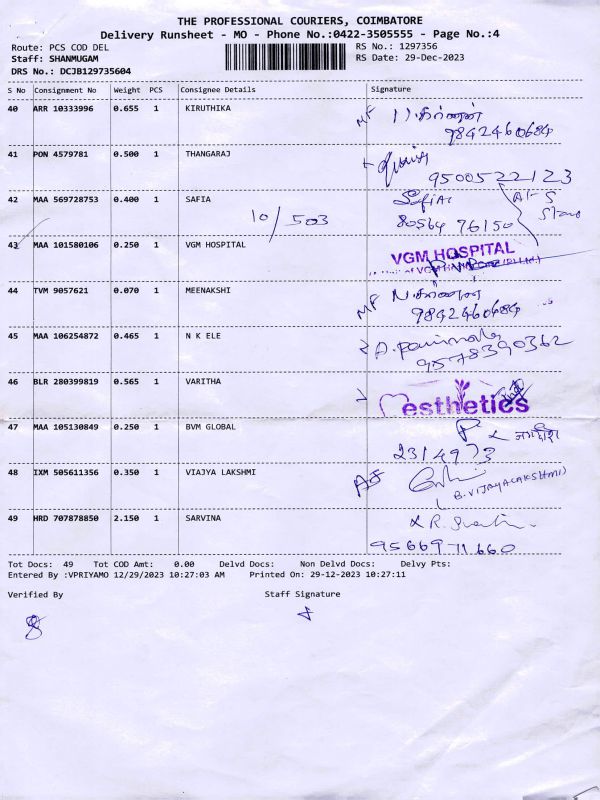 THE PROFESSIONAL COURIERS, COIMBATORE
Delivery Runsheet - MO - Phone No.:0422-3505555 - Page No.:4
Route: PCS COD DEL
RS No.: 1297356
Staff: SHANMUGAM
RS Date: 29-Dec-2023
DRS No.: DCJB129735604
S No Consignment No Weight PCS Consignee Details Signature
40 ARR 10333996 0.655 1 KIRUTHIKA
9842460684
41 PON 4579781 0.500 1 THANGARAJ
9500522123
42 MAA 569728753 0.400 1 SAFIA Safia
10/503 80564 76150
43 MAA 101580106 0.250 1 VGM HOSPITAL VGM HOSPITAL
44 TVM 9057621 0.070 1 MEENAKSHI
9842460684
45 MAA 106254872 0.465 1 N K ELE
9578390362
46 BLR 280399819 0.565 1 VARITHA
esthetics
47 MAA 105130849 0.250 1 BVM GLOBAL
2314973
48 IXM 505611356 0.350 1 VIAJYA LAKSHMI
(B. VIJAYALAKSHMI)
49 HRD 707878850 2.150 1 SARVINA
9566971660
Tot Docs: 49 Tot COD Amt: 0.00 Delvd Docs: Non Delvd Docs: Delvy Pts:
Entered By :VPRIYAMO 12/29/2023 10:27:03 AM Printed On: 29-12-2023 10:27:11
Verified By Staff Signature